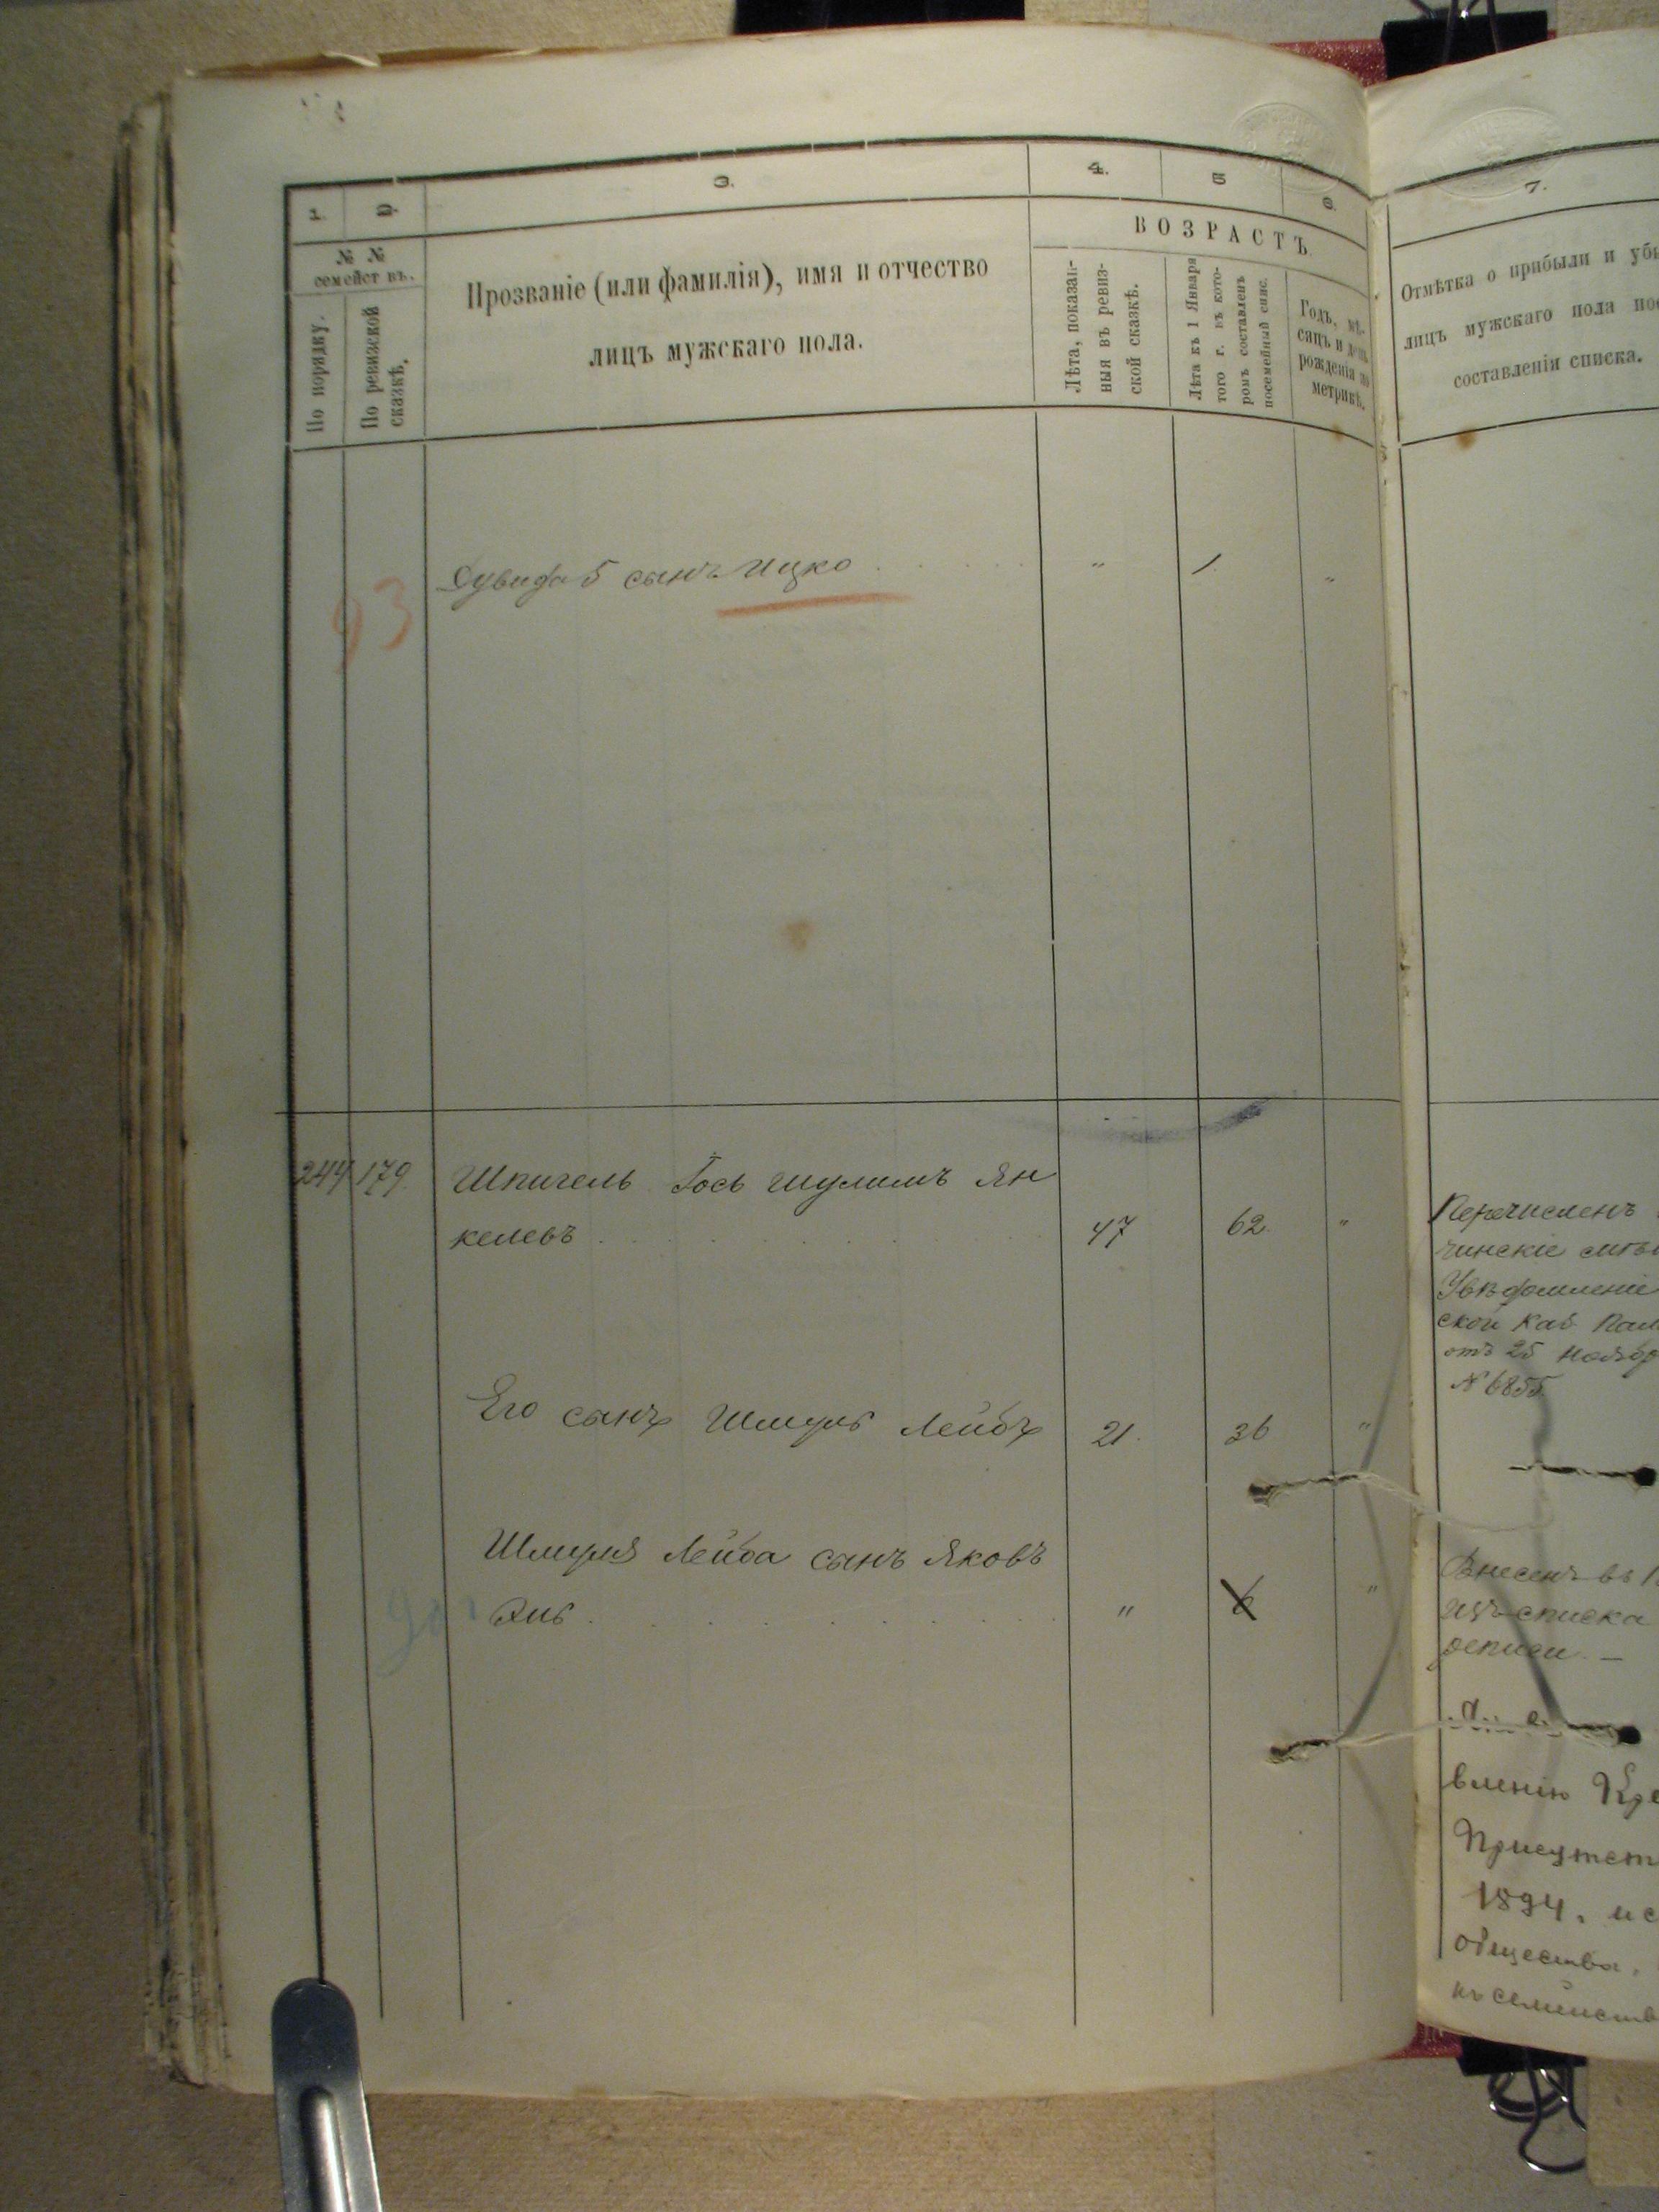 1. 2. 3. 4. 5 6.
№ №
семействъ.
По порядку.
По ревизской
сказкѣ.
Прозваніе (или фамилія), имя и отчество
лицъ мужскаго пола.
ВОЗРАСТЪ
Лѣта, показан-
ныя въ ревиз-
ской сказкѣ.
Лѣта къ 1 Января
того г. въ кото-
ромъ составленъ
посемейный спис.
Годъ, мѣ-
сяцъ и день
рожденія по
метрикѣ.
93 5 сынъ Ицко . . . . . " 1 "
244 179. Шпигель Іось Шулимъ Ян
келевъ . . . . . . . 47 62. "
Его сынъ Шмуль Лейбъ 21. 36 "
Шмуля Лейба сынъ Яковъ
. . . . . . . " 6 "
7.
Отмѣтка о прибыли и убы
лицъ мужскаго пола пос
составленія списка.
Перечисленъ
чинскіе
Увѣдомленіе
ской Каз Пал
отъ 25 Ноябр
№ 6855.
Внесенъ въ
изъ списка
описи. —
вленію
Присутст
1894. ис
общества.
къ семейств